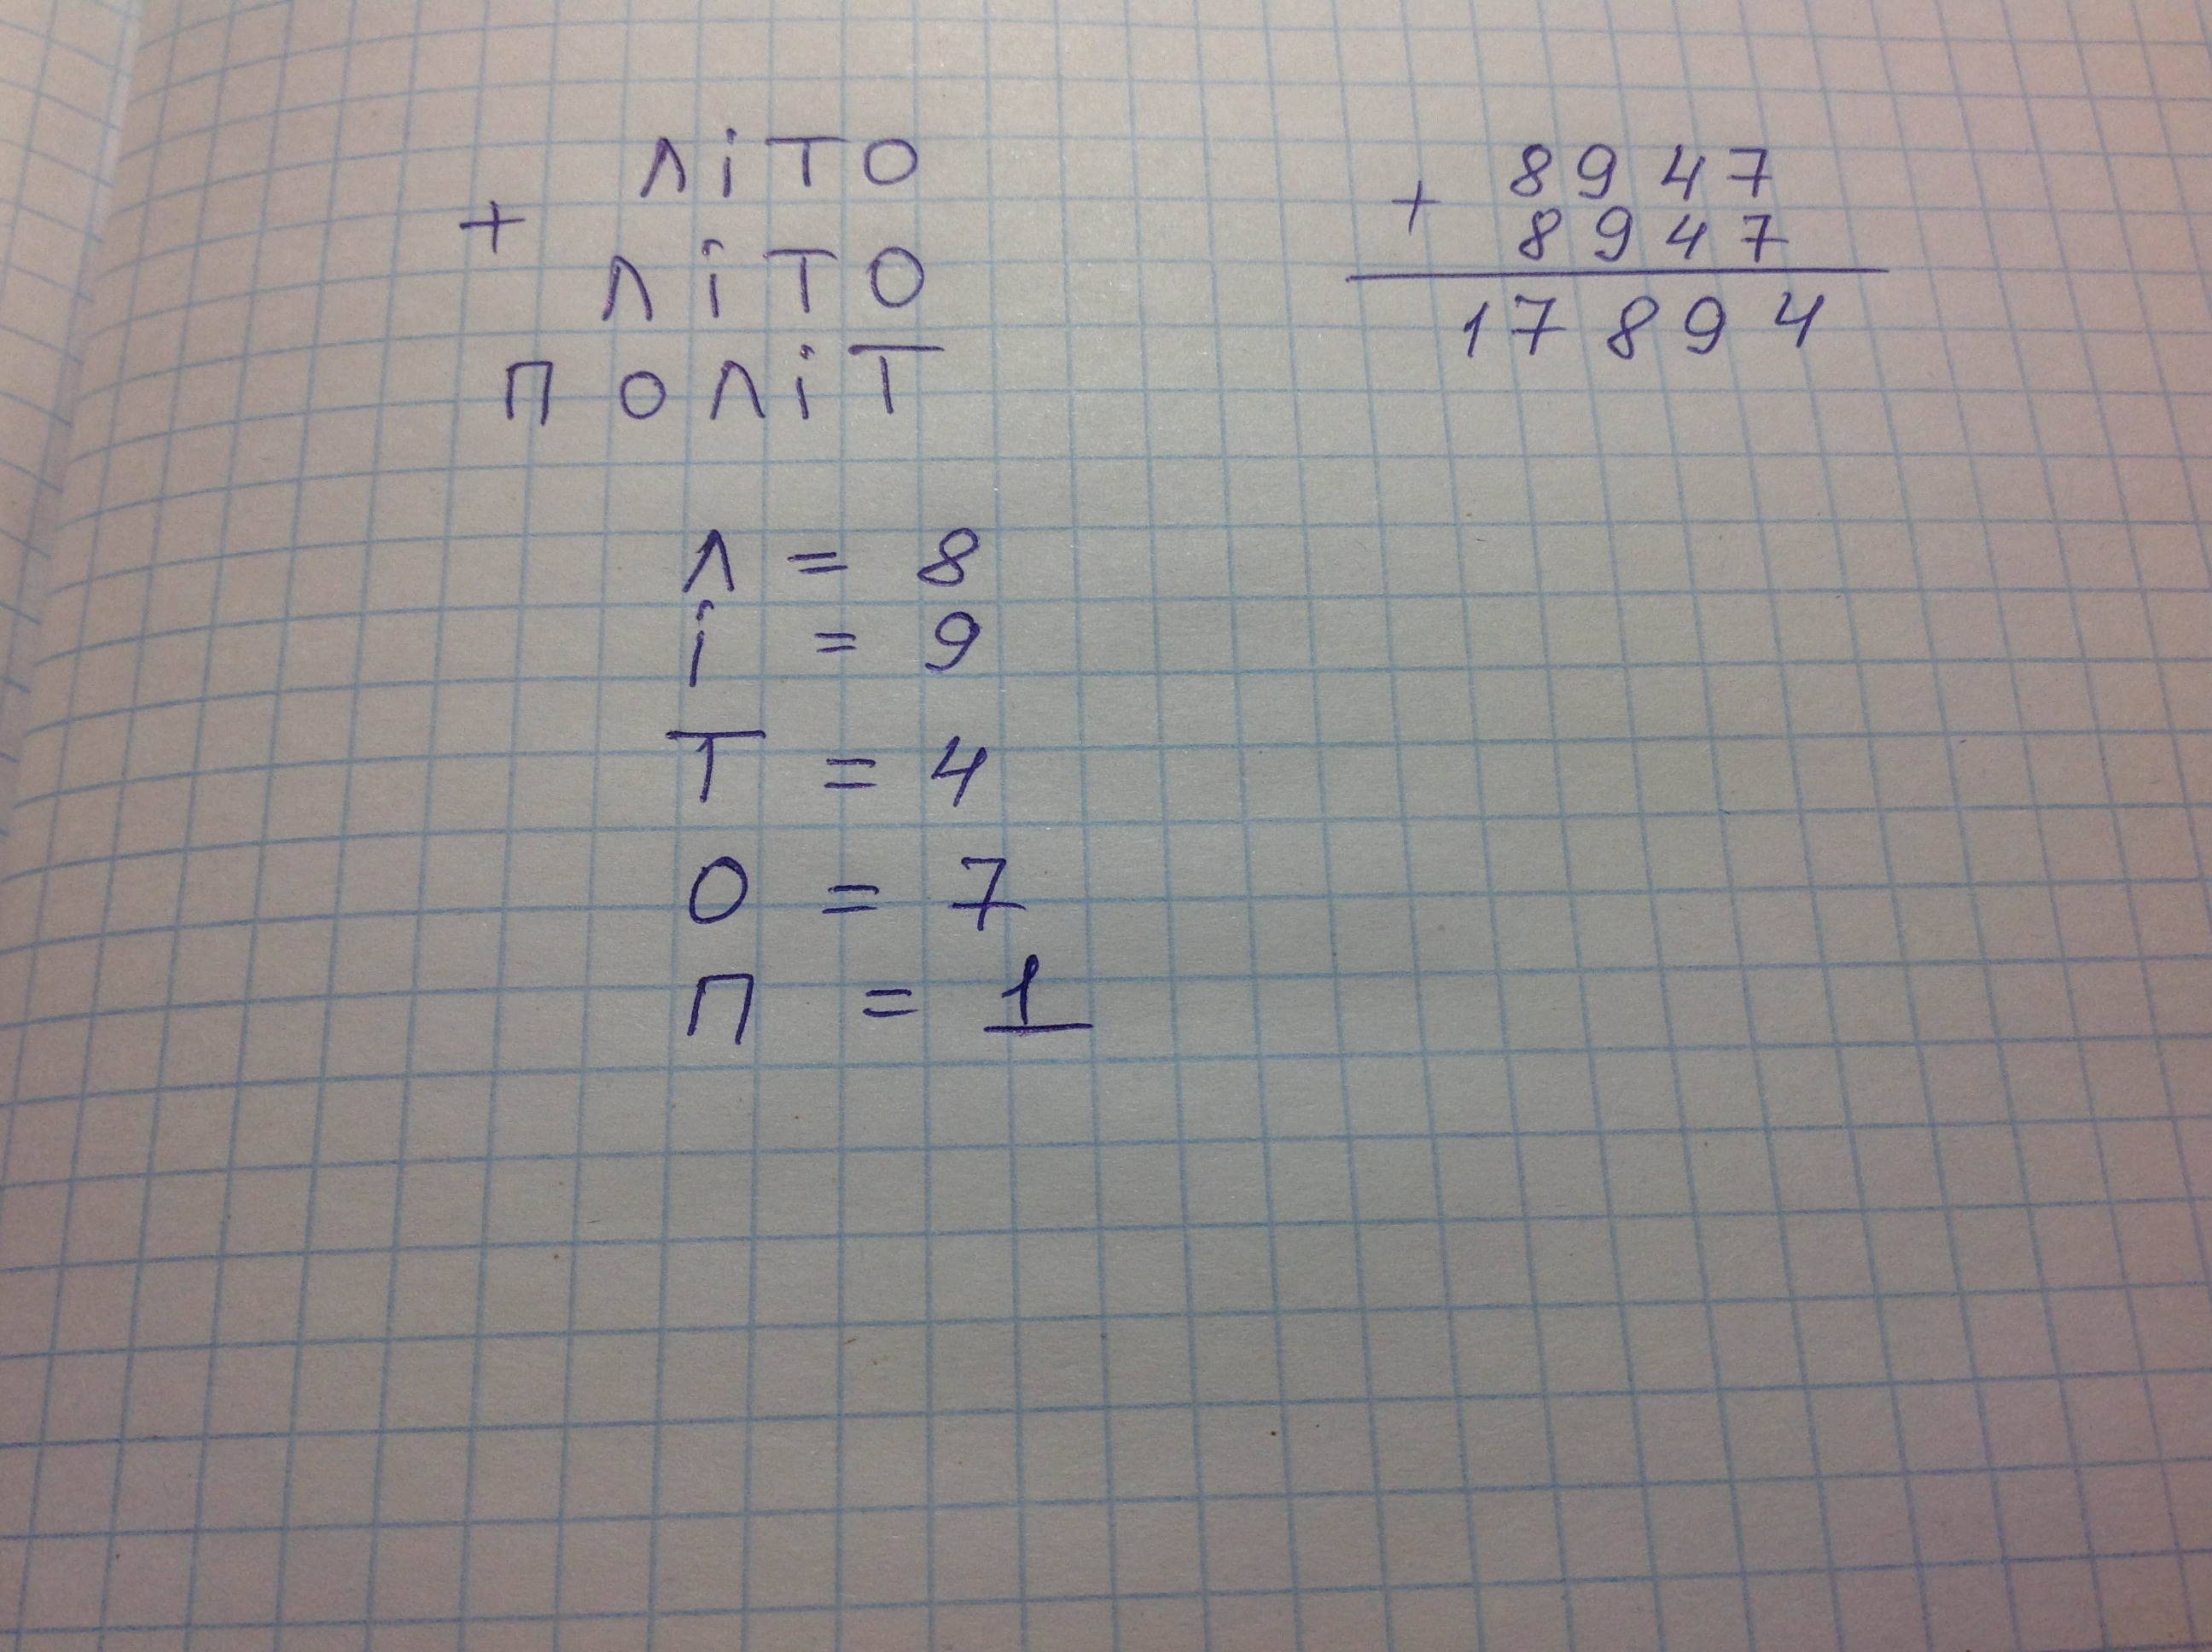 літо
+
літо
політ
8947
+
8947
17894
л = 8
і = 9
т = 4
о = 7
п = 1